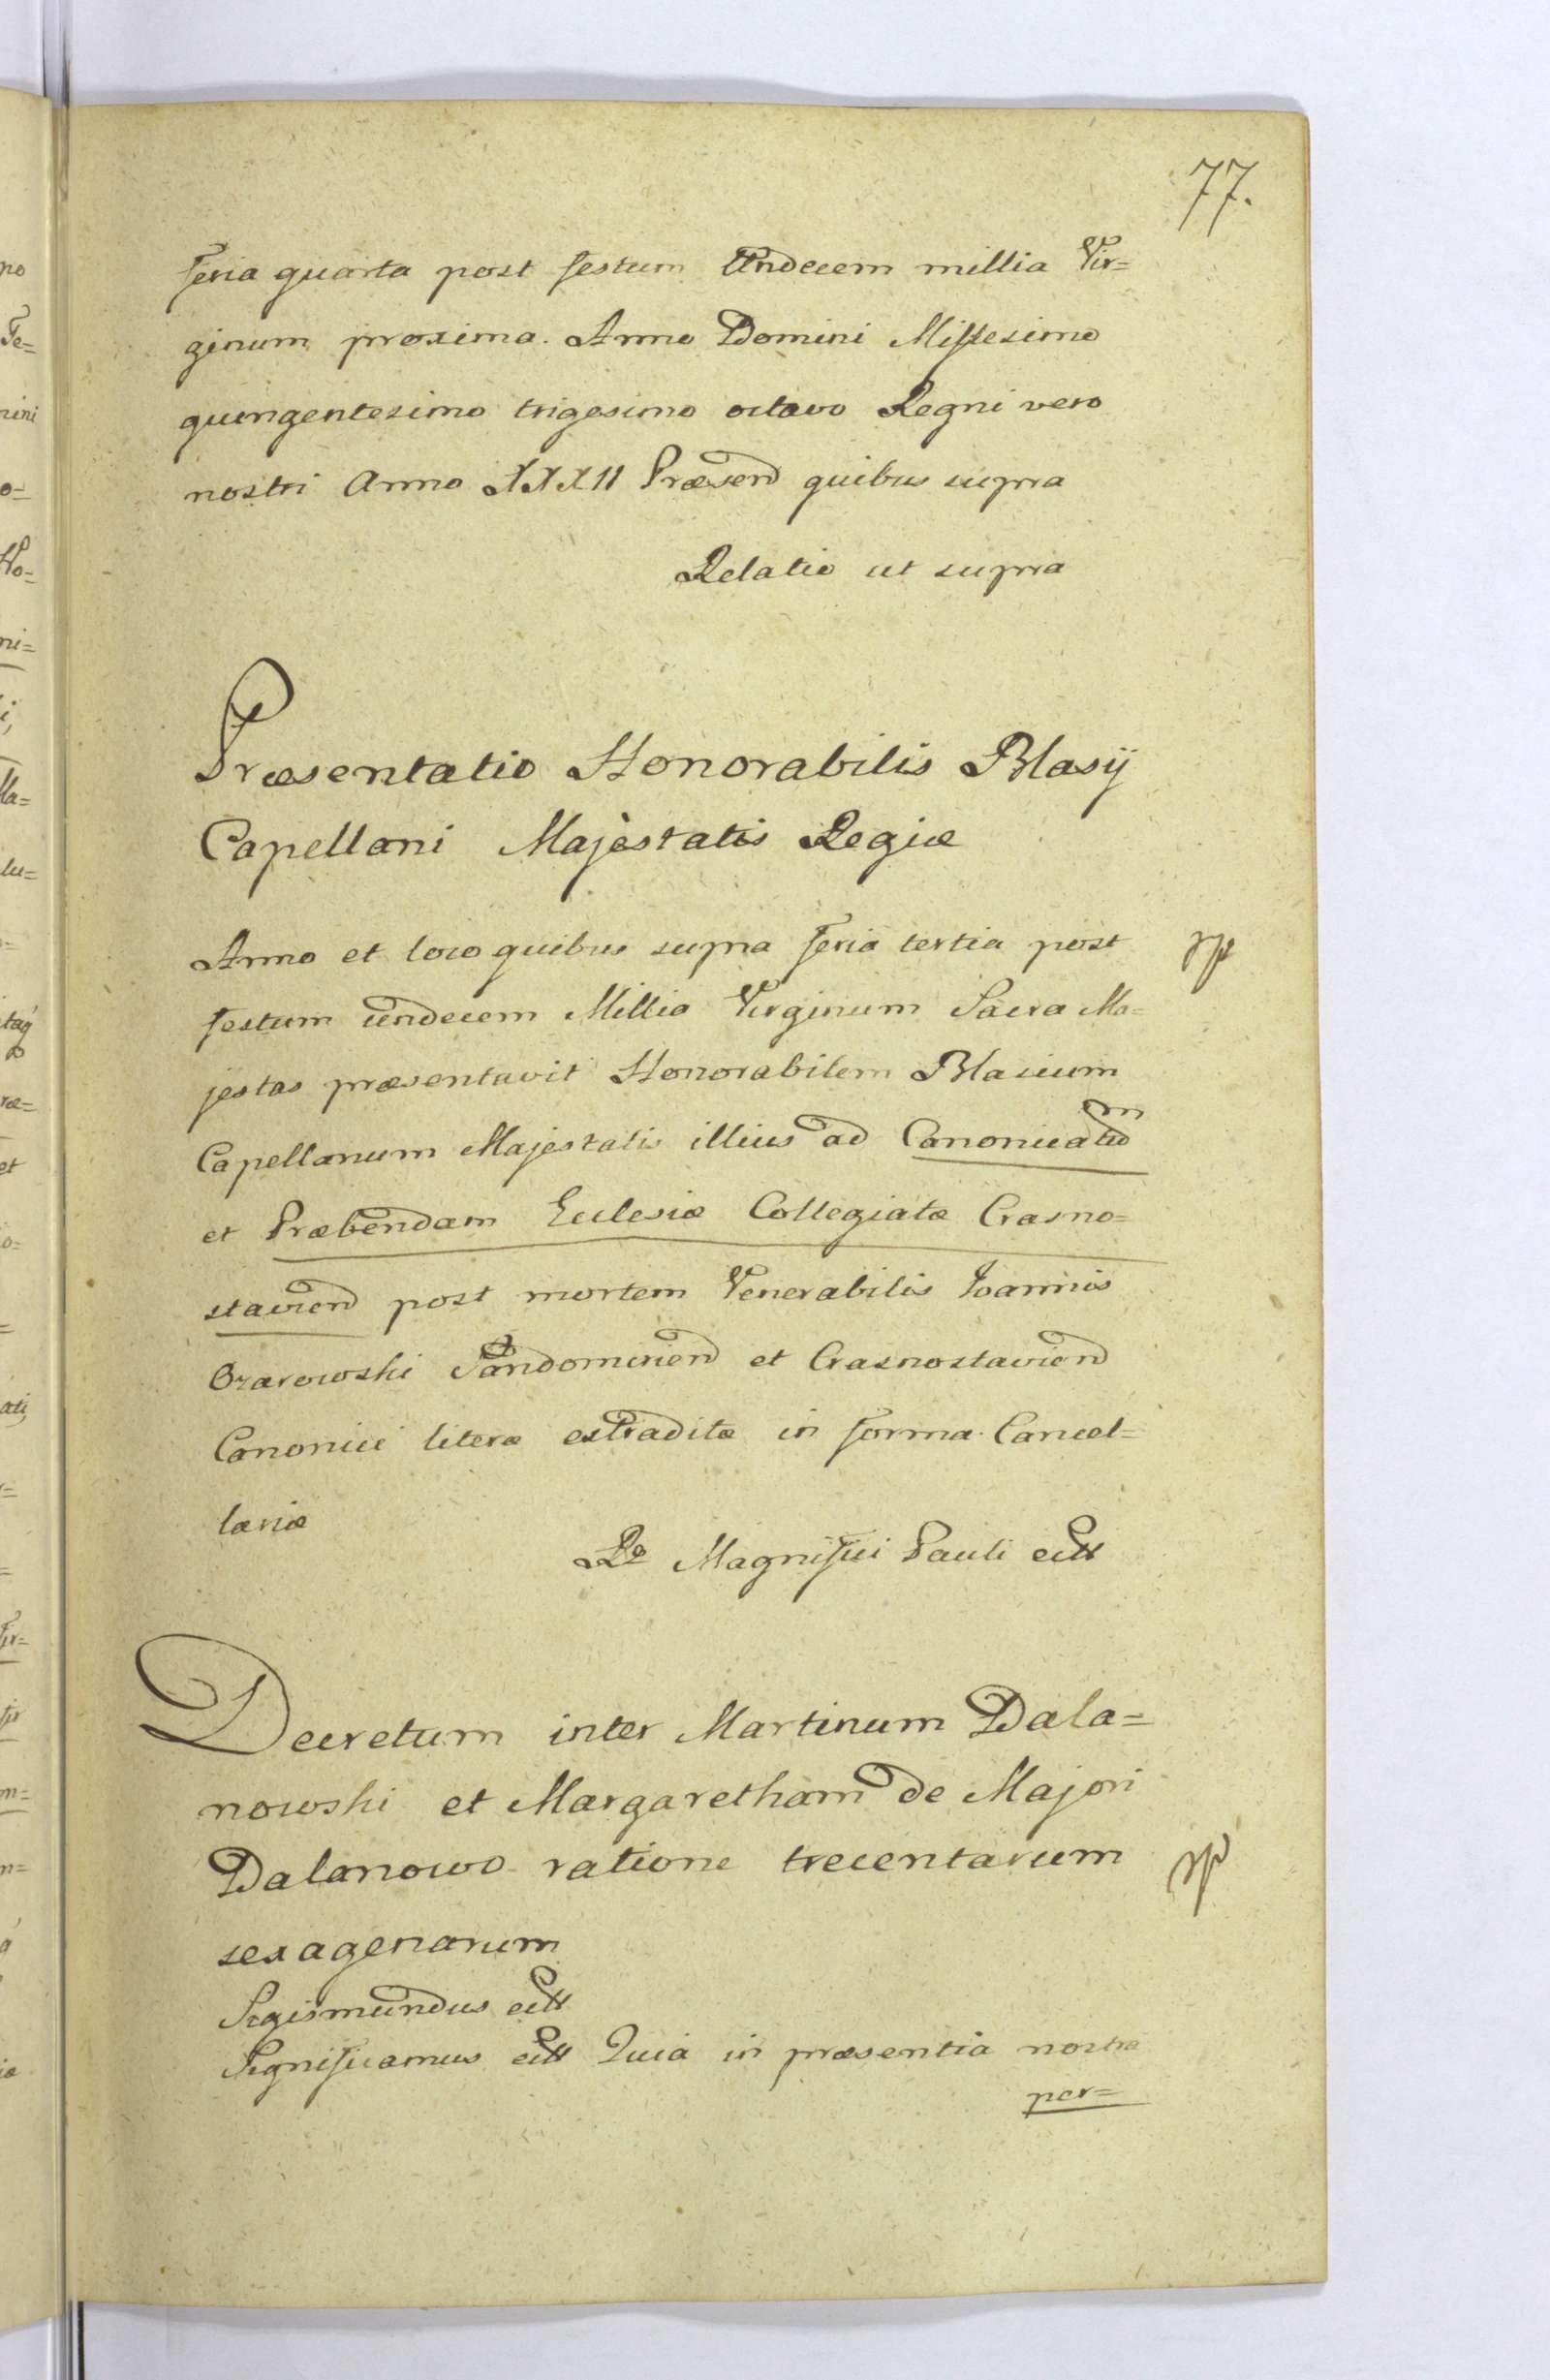 77.
feria quarta post festum Undecem millia Vir=
ginum proxima. Anno Domini Millesimo
quingentesimo trigesimo octavo Regni vero
nostri Anno XXXII Præsend quibus supra
Relatio ut supra
Præsentatio Honorabilis Blasÿ
Capellani Majestatis Regiæ
Anno et loco quibus supra feria tertia post
festum undecem Millia Virginum Sacra Ma=
jestas præsentavit Honorabilem Blasium
Capellanum Majestatis illius ad Canonicatum
et Præbendam Eclesiæ Collegiatæ Crasno=
staviend post mortem Venerabilis Joannis
Ozarowski Sandomiriend et Crasnostaviend
Canonici literæ extraditæ in forma Cancel=
lariæ
Ro Magnifici Pauli ectt
Decretum inter Martinum Dala=
nowski et Margaretham de Majori
Dalanowo ratione trecentarum
sexagenarum
Sigismundus ectt
Significamus ectt Quia in præsentia nostra
per=